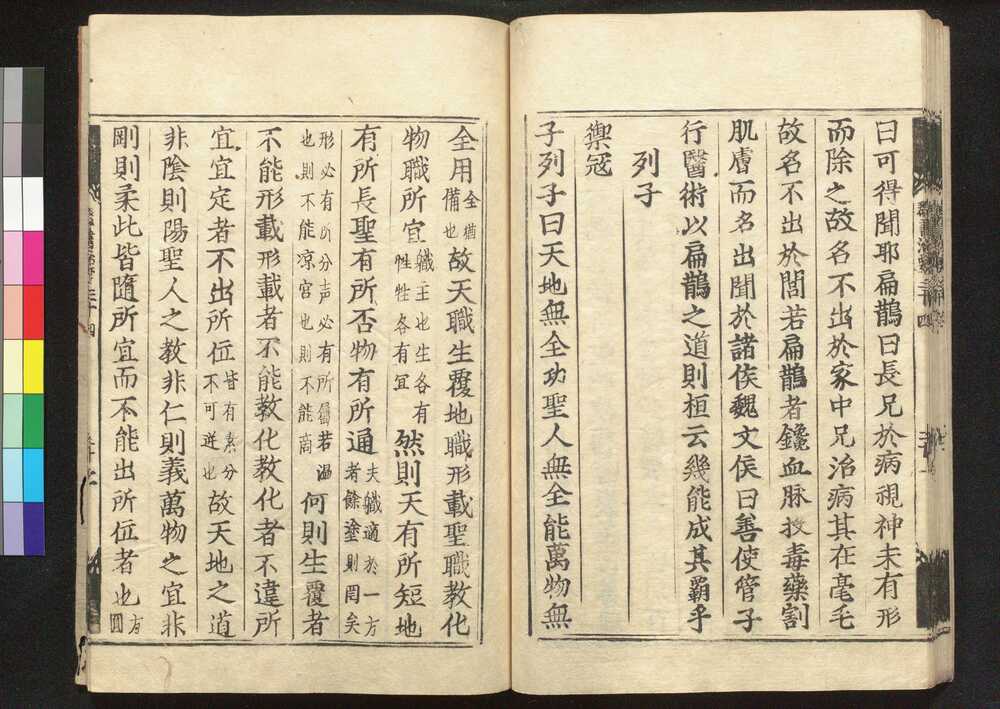 曰可得聞耶扁鵲曰長兄於病視神未有形
而除之故名不出於家中兄治病其在毫毛
故名不出於閭若扁鵲者鑱血脉投毒藥割
肌膚而名出聞於諸侯魏文侯曰善使管子
行醫術以扁鵲之道則桓云幾能成其霸乎
列子
禦冠
子列子曰天地無全功聖人無全能萬物無
全用全猶備也故天職生覆地職形載聖職教化
物職所宜軄主也生各有性牲各有宜然則天有所短地
有所長聖有所否物有所通夫軄適於一方者餘塗則罔矣
形必有所分声必有所屬若温也則不能凉宫也則不能商何則生覆者
不能形載形載者不能教化教化者不違所
宜宜定者不出所位皆有素分不可逆也故天地之道
非陰則陽聖人之教非仁則義萬物之宜非
剛則柔此皆隨所宜而不能出所位者也方圓
群書治要三十四